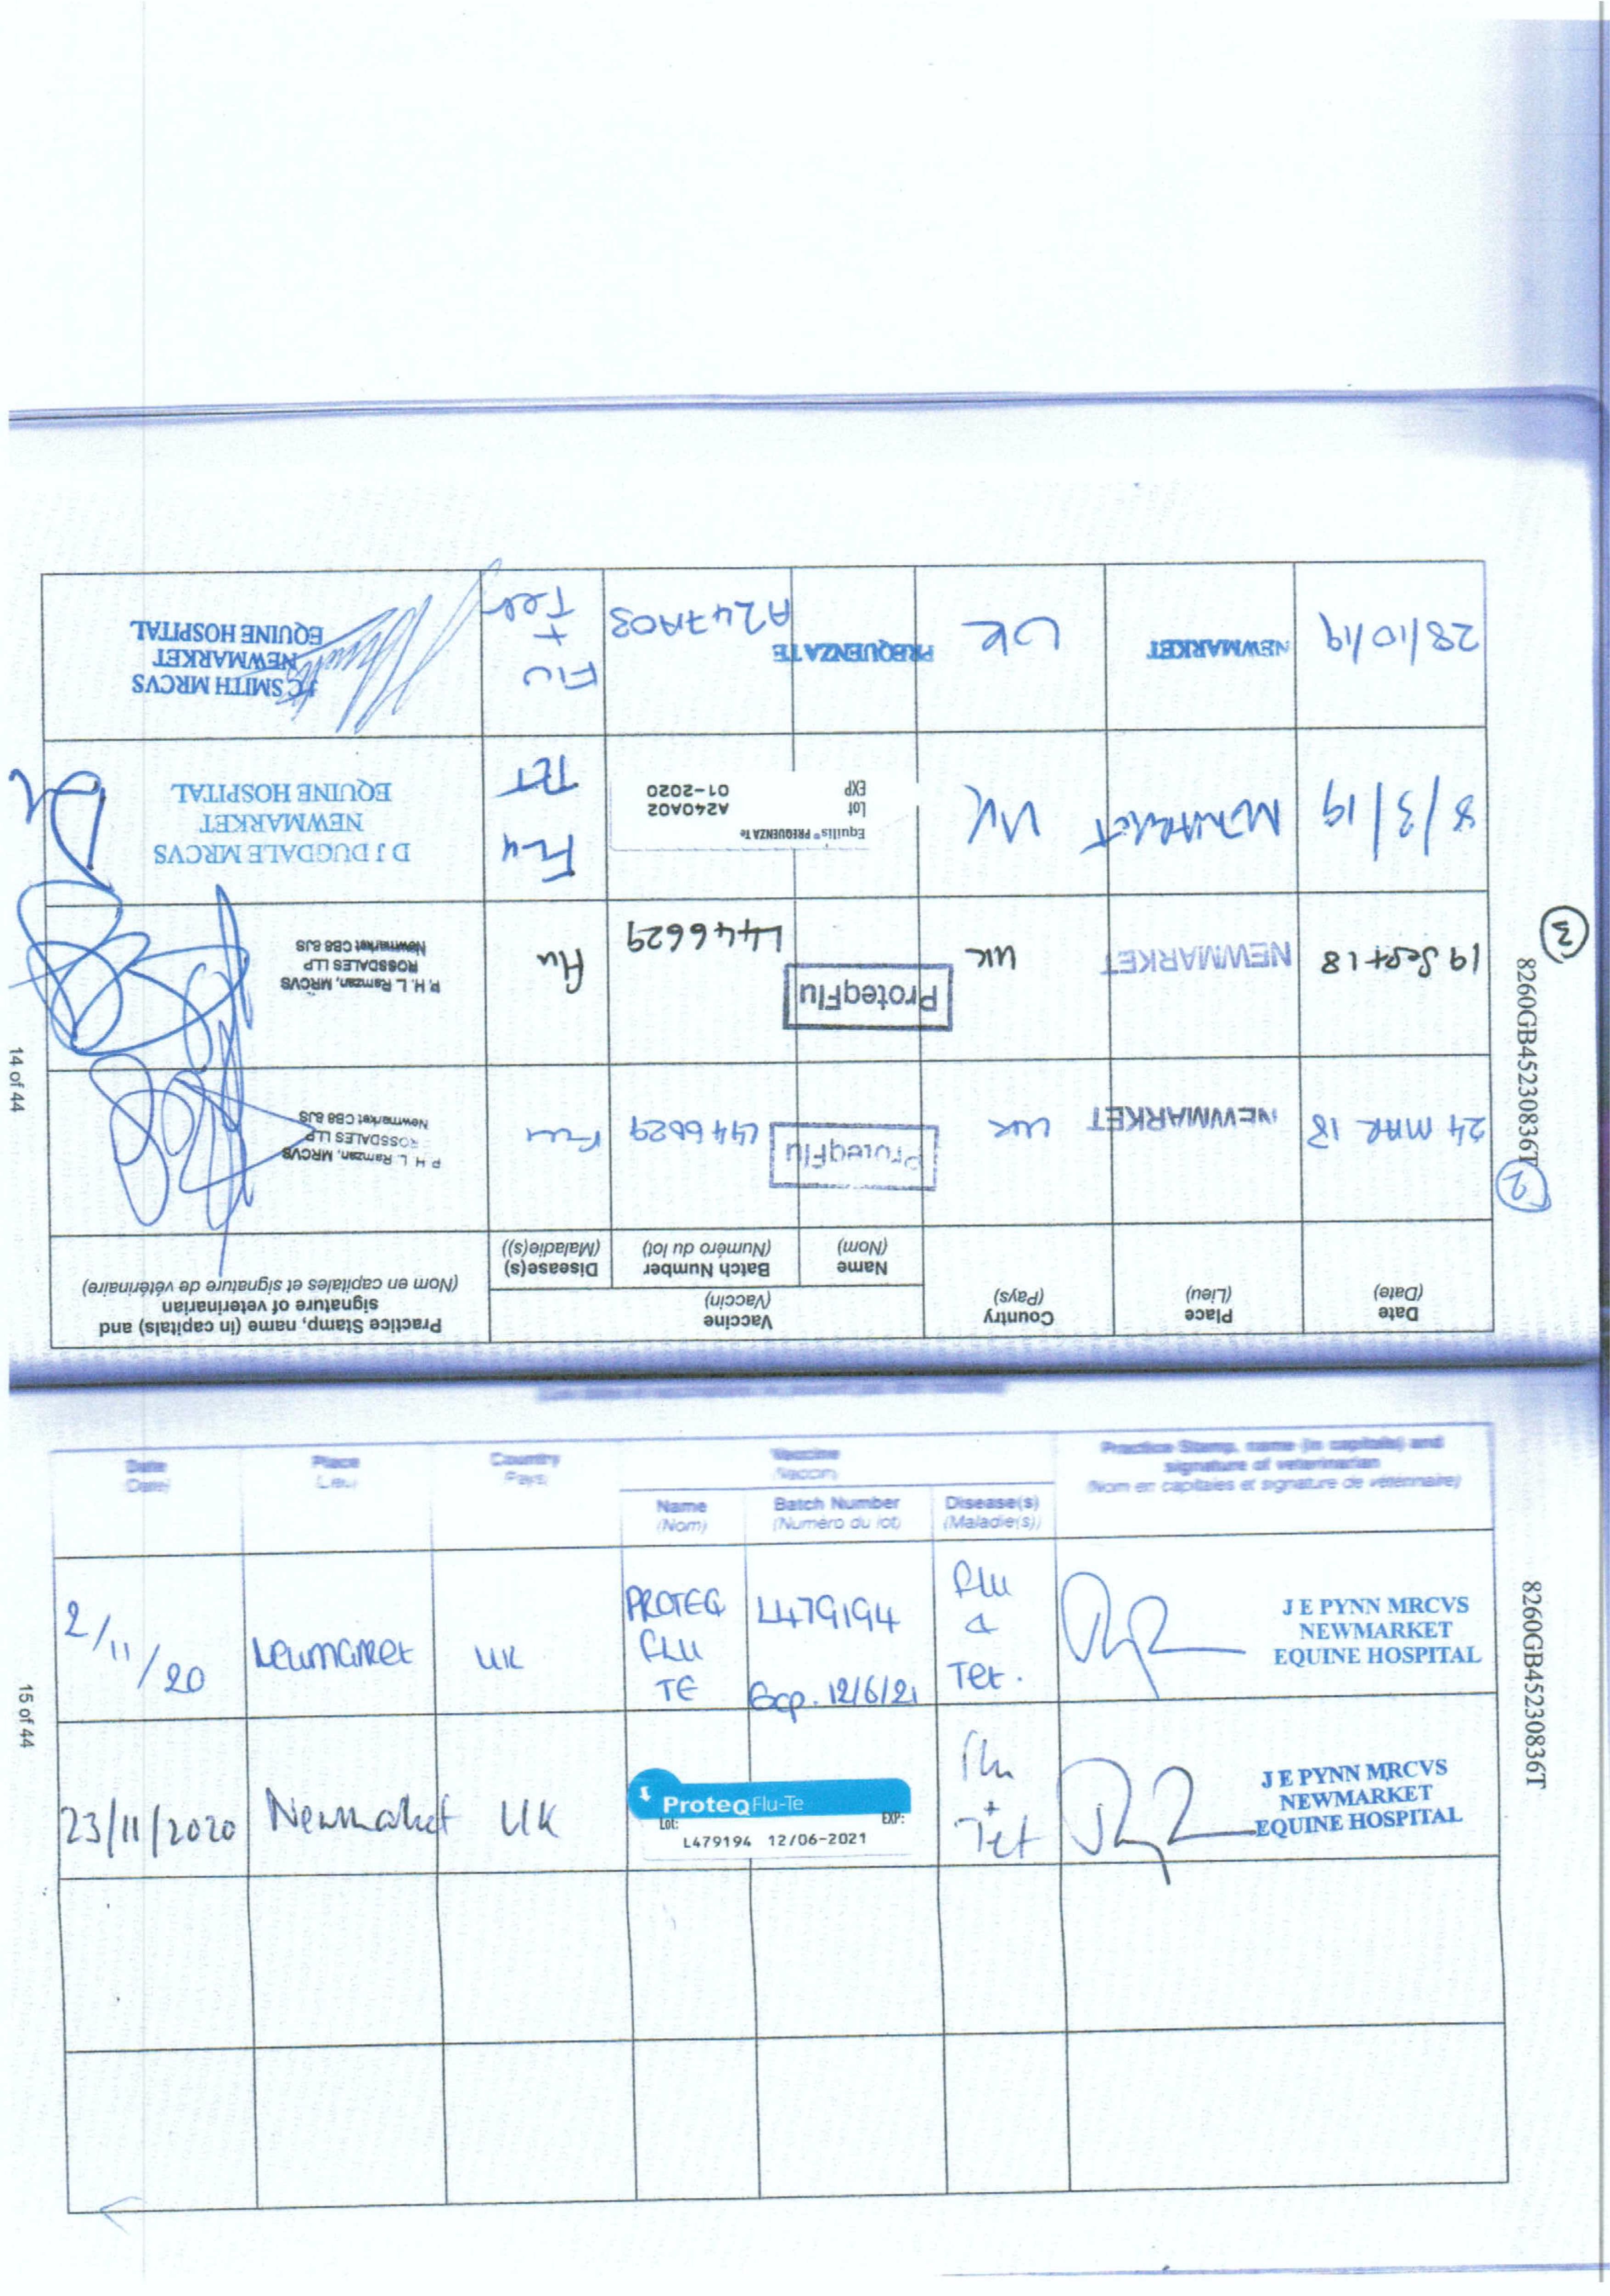 14 of 44
8260GB45230836T
2
3
Date
(Date)
Place
(Lieu)
Country
(Pays)
Vaccine
(Vaccin)
Name
(Nom)
Batch Number
(Numéro du lot)
Disease(s)
(Maladie(s))
Practice Stamp, name (in capitals) and
signature of veterinarian
(Nom en capitales et signature de vétérinaire)
24 MAR 18
NEWMARKET
UK
ProteqFlu
L446629
Flu
P. H. L. Ramzan, MRCVS
ROSSDALES LLP
Newmarket CB8 8JS
19 Sept 18
NEWMARKET
UK
ProteqFlu
L446629
Flu
P. H. L. Ramzan, MRCVS
ROSSDALES LLP
Newmarket CB8 8JS
8/3/19
UK
Equilis® PREQUENZA Te
Lot A240A02
EXP 01-2020
FLU
TET
D J DUGDALE MRCVS
NEWMARKET
EQUINE HOSPITAL
28/10/19
NEWMARKET
UK
PREQUENZA TE
A247A03
Flu
+
Tet
J C SMITH MRCVS
NEWMARKET
EQUINE HOSPITAL
Date
(Date)
Place
(Lieu)
Country
(Pays)
Vaccine
(Vaccin)
Name
(Nom)
Batch Number
(Numéro du lot)
Disease(s)
(Maladie(s))
Practice Stamp, name (in capitals) and
signature of veterinarian
(Nom en capitales et signature de vétérinaire)
2/11/20
Newmarket
UK
PROTEQ
FLU
TE
L479194
Exp. 12/6/21
Flu
&
Tet.
J E PYNN MRCVS
NEWMARKET
EQUINE HOSPITAL
23/11/2020
Newmarket
UK
ProteqFlu-Te
Lot: EXP:
L479194 12/06-2021
Flu
+
Tet
J E PYNN MRCVS
NEWMARKET
EQUINE HOSPITAL
15 of 44
8260GB45230836T